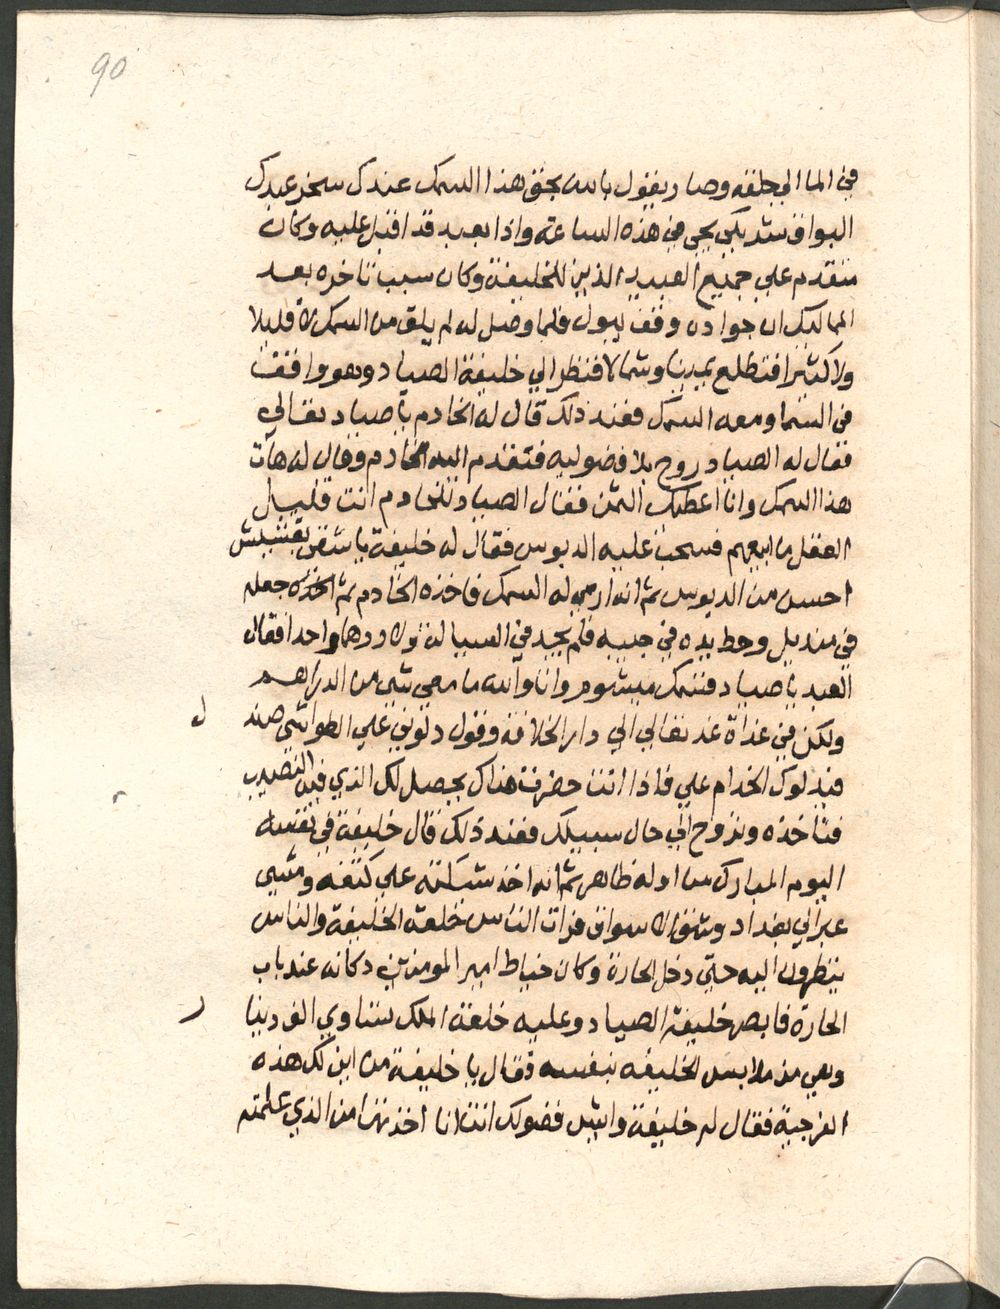 90
في الما الي حلقه وصار يقول بالله بحق هذا السمك عندك سخر عبدك
البواق شديكي يجي في هذه الساعة واذا بعبد قد اقبل عليه وكان
متقدم علي جميع العبيد الذين للخليفة وكان سبب تاخره بعد
المماليك ان جواده وقف يبول فلما وصل له لم يلق من السمك لا قليلا
ولا كثيرا فتطلع يمينا وشمالا فنظر الي خليفة الصياد وهو واقف
في السما ومعه السمك فعند ذلك قال له الخادم يا صياد تعالي
فقال له الصياد روح بلا فضوليه فتقدم اليه الخادم وقال له هات
هذا السمك وانا اعطيك الثمن فقال الصياد للخادم انت قليل
العقل ما ابيعهم فسحب عليه الدبوس فقال له خليفة يا شقي
احسن من الدبوس ثم انه ارمي له السمك فاخذه الخادم ثم اخذه جعله
في منديل وحط يده في جيبه فلم يجد في السيالة ولا درهما واحدا فقال
العبد يا صياد قسمك ميشوم وانا والله ما معي شي من الدراهم
ولكن في غداة غد تعالي الي دار الخلافة وقول دلوني علي الطواشي صند
ل
فيدلوك الخدام علي فاذا انت حضرت هناك يحصل لك الذي فيه النصيب
فتاخذه وتروح الي حال سبيلك فعند ذلك قال خليفة في نفسه
اليوم المبارك من اوله ظاهر ثم انه اخذ شبكته علي كتفه ومشي
عبر الي بغداد وشق الاسواق فرات الناس خلعة الخليفة والناس
ينظرون اليه حتي دخل الحارة وكان خياط امير المومنين دكانه عند باب
الحارة فابصر خليفة الصياد وعليه خلعة الملك تساوي الف دينا
ر
وهي من ملابس الخليفه بنفسه فقال يا خليفة من اين لك هذه
الفرجية فقال له خليفة وايش فضولك انت انا اخذتها من الذي علمته